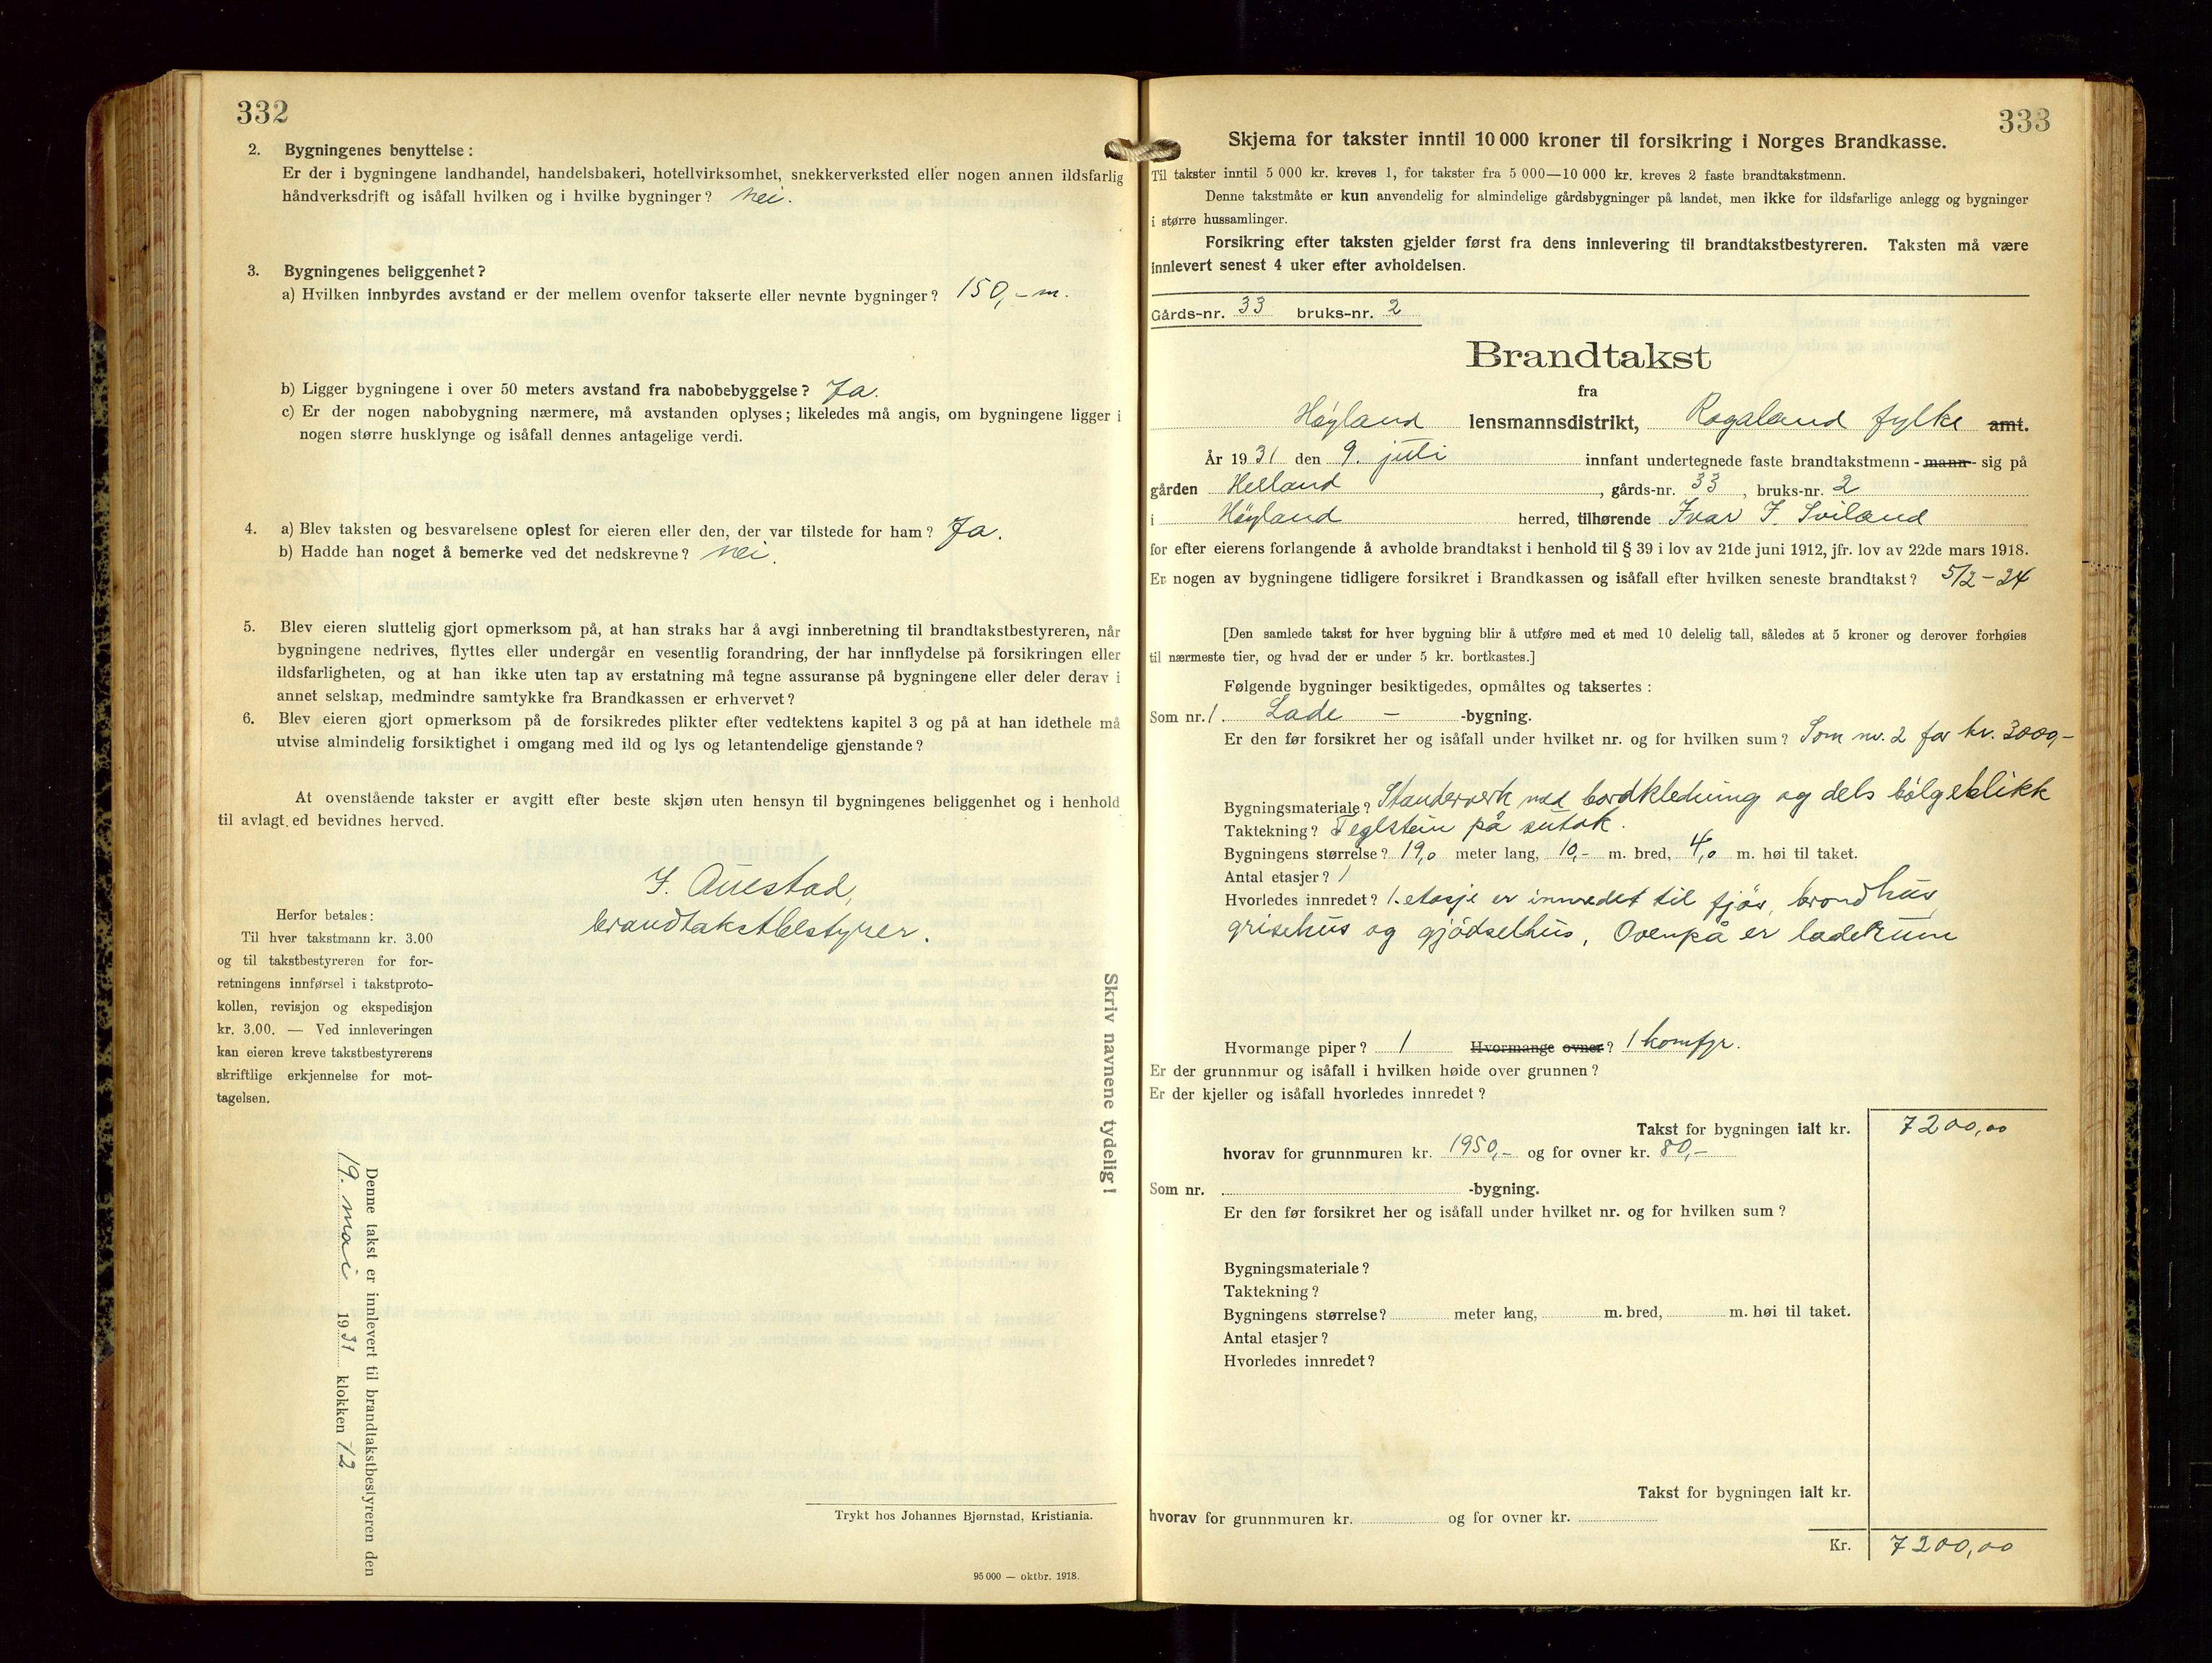 332
2. Bygningenes benyttelse :
Er der i bygningene landhandel, handelsbakeri, hotellvirksomhet, snekkerverksted eller nogen annen ildsfarlig
håndverksdrift og isåfall hvilken og i hvilke bygninger? Nei.
3. Bygningenes beliggenhet?
a) Hvilken innbyrdes avstand er der mellem ovenfor takserte eller nevnte bygninger? 150,- m.
b) Ligger bygningene i over 50 meters avstand fra nabobebyggelse? Ja.
c) Er der nogen nabobygning nærmere, må avstanden oplyses; likeledes må angis, om bygningene ligger i
nogen større husklynge og isåfall dennes antagelige verdi.
4. a) Blev taksten og besvarelsene oplest for eieren eller den, der var tilstede for ham? Ja.
b) Hadde han noget å bemerke ved det nedskrevne? Nei.
5. Blev eieren sluttelig gjort opmerksom på, at han straks har å avgi innberetning til brandtakstbestyreren, når
bygningene nedrives, flyttes eller undergår en vesentlig forandring, der har innflydelse på forsikringen eller
ildsfarligheten, og at han ikke uten tap av erstatning må tegne assuranse på bygningene eller deler derav i
annet selskap, medmindre samtykke fra Brandkassen er erhvervet?
6. Blev eieren gjort opmerksom på de forsikredes plikter efter vedtektens kapitel 3 og på at han idethele må
utvise almindelig forsiktighet i omgang med ild og lys og letantendelige gjenstande?
At ovenstående takster er avgitt efter beste skjøn uten hensyn til bygningenes beliggenhet og i henhold
til avlagt ed bevidnes herved.
J. Auestad,
brandtakstbestyrer.
Herfor betales:
Til hver takstmann kr. 3.00
og til takstbestyreren for for-
retningens innførsel i takstproto-
kollen, revisjon og ekspedisjon
kr. 3.00. — Ved innleveringen
kan eieren kreve takstbestyrerens
skriftlige erkjennelse for mot-
tagelsen.
Skriv navnene tydelig!
Denne takst er innlevert til brandtakstbestyreren den
19. mai 1931 klokken 12
Trykt hos Johannes Bjørnstad, Kristiania.
95 000 — oktbr. 1918.
333
Skjema for takster inntil 10 000 kroner til forsikring i Norges Brandkasse.
Til takster inntil 5 000 kr. kreves 1, for takster fra 5 000—10 000 kr. kreves 2 faste brandtakstmenn.
Denne takstmåte er kun anvendelig for almindelige gårdsbygninger på landet, men ikke for ildsfarlige anlegg og bygninger
i større hussamlinger.
Forsikring efter taksten gjelder først fra dens innlevering til brandtakstbestyreren. Taksten må være
innlevert senest 4 uker efter avholdelsen.
Gårds-nr. 33 bruks-nr. 2
Brandtakst
fra
Høyland lensmannsdistrikt, Rogaland fylke amt.
År 1931 den 9. juli innfant undertegnede faste brandtakstmenn - mann - sig på
gården Helland, gårds-nr. 33, bruks-nr. 2
i Høyland herred, tilhørende Ivar J. Sviland
for efter eierens forlangende å avholde brandtakst i henhold til § 39 i lov av 21de juni 1912, jfr. lov av 22de mars 1918.
Er nogen av bygningene tidligere forsikret i Brandkassen og isåfall efter hvilken seneste brandtakst? 5/2 - 24
[Den samlede takst for hver bygning blir å utføre med et med 10 delelig tall, således at 5 kroner og derover forhøies
til nærmeste tier, og hvad der er under 5 kr. bortkastes.]
Følgende bygninger besiktigedes, opmåltes og taksertes :
Som nr. 1 Lade - -bygning.
Er den før forsikret her og isåfall under hvilket nr. og for hvilken sum? Som nr. 2 for kr. 3000,-
Bygningsmateriale? Standerverk med bordkledning og dels bølgeblikk
Taktekning? Teglstein på sutak.
Bygningens størrelse? 19,0 meter lang, 10,- m. bred, 4,0 m. høi til taket.
Antal etasjer? 1
Hvorledes innredet? 1. etasje er innredet til fjøs, brondhus
grisehus og gjødselhus, Ovenpå er laderum
Hvormange piper? 1 Hvormange ovner? 1 komfyr.
Er der grunnmur og isåfall i hvilken høide over grunnen?
Er der kjeller og isåfall hvorledes innredet?
Takst for bygningen ialt kr. 7200,00
hvorav for grunnmuren kr. 1950,- og for ovner kr. 80,-
Som nr. -bygning.
Er den før forsikret her og isåfall under hvilket nr. og for hvilken sum?
Bygningsmateriale?
Taktekning?
Bygningens størrelse? meter lang, m. bred, m. høi til taket.
Antal etasjer?
Hvorledes innredet?
Takst for bygningen ialt kr.
hvorav for grunnmuren kr. og for ovner kr.
Kr. 7200,00